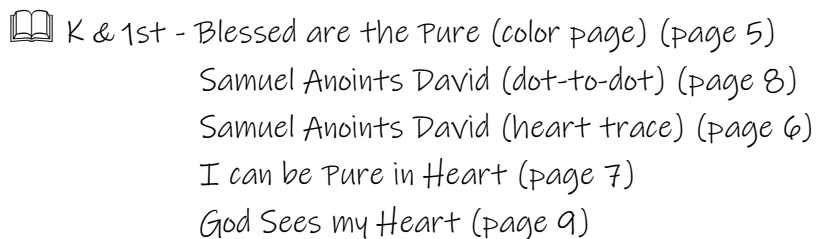 K & 1st - Blessed are the Pure (color page) (page 5)
Samuel Anoints David (dot-to-dot) (page 8)
Samuel Anoints David (heart trace) (page 6)
I can be Pure in Heart (page 7)
God Sees my Heart (page 9)